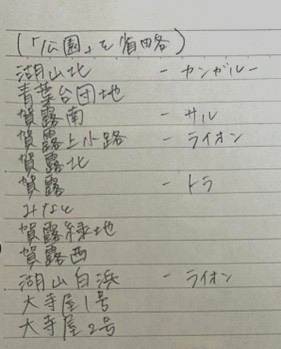 (「公園」を省略)
湖山北 - カンガルー
青葉台団地
賀露南 - サル
賀露上小路 - ライオン
賀露北
賀露 - トラ
みなと
賀露緑地
賀露西
湖山白浜 - ライオン
大寺屋1号
大寺屋2号